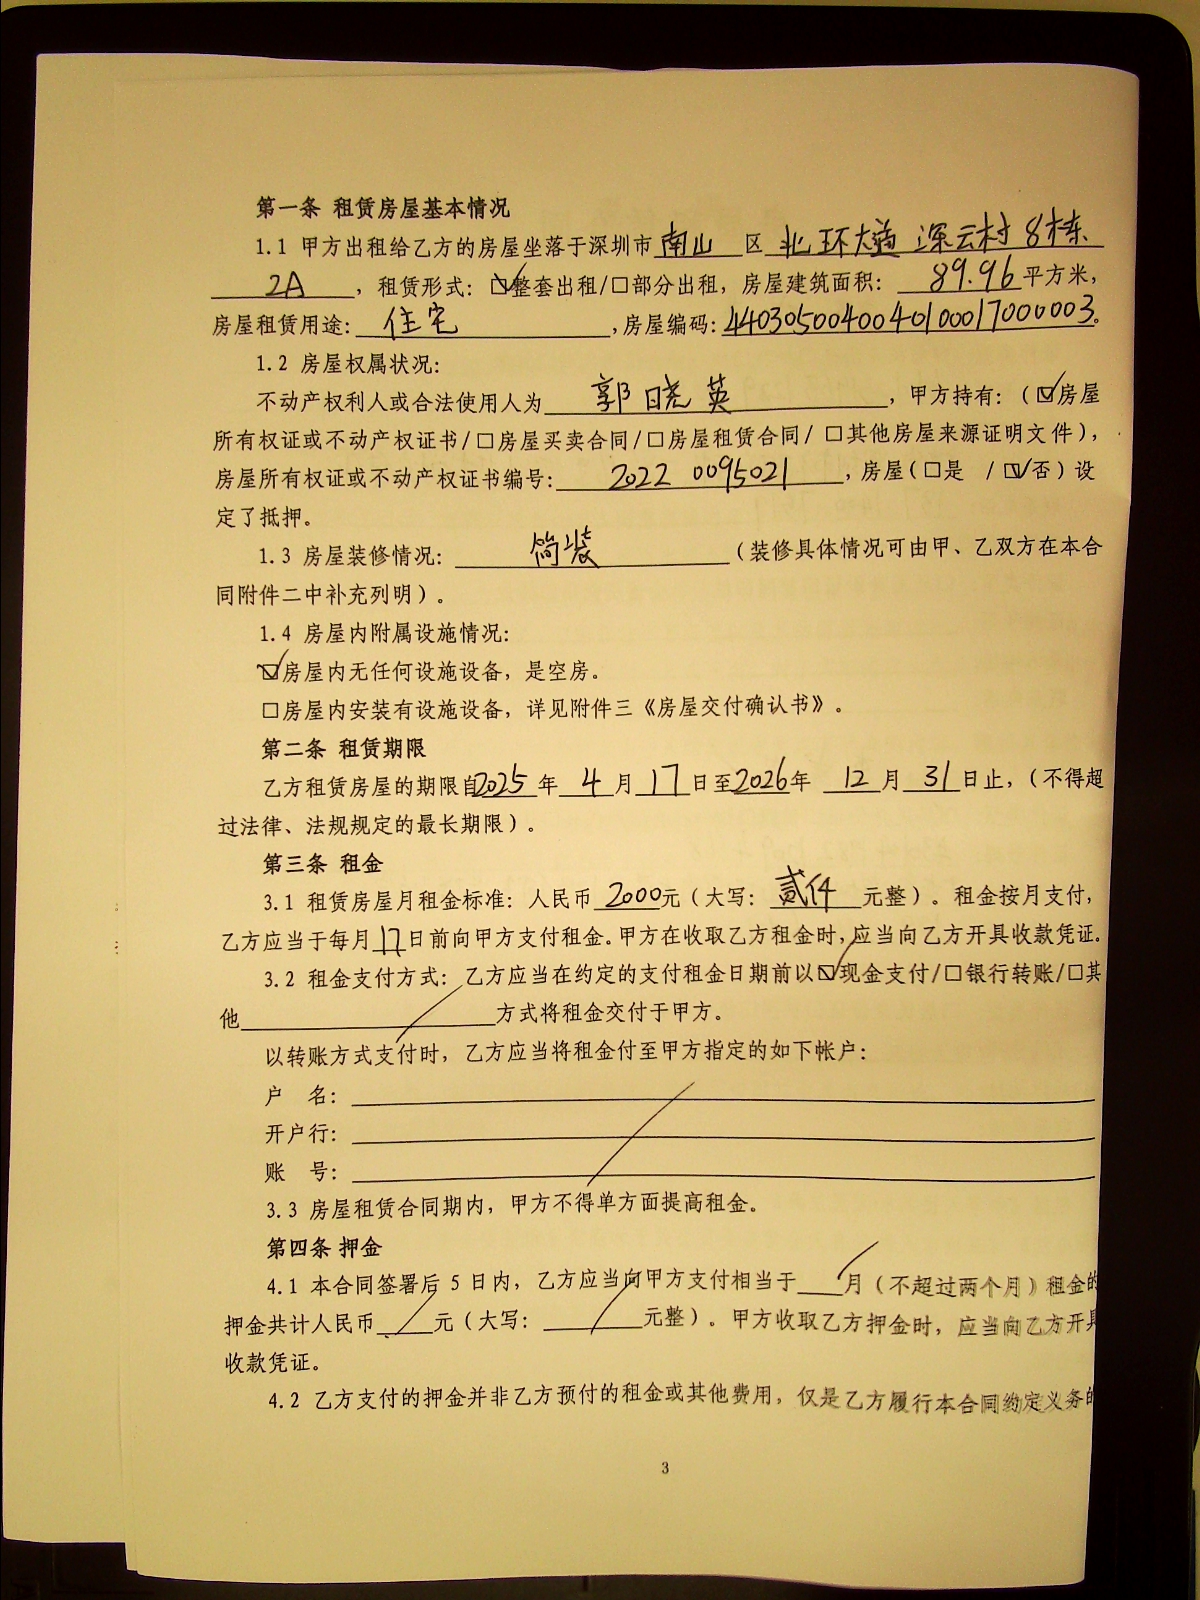 第一条 租赁房屋基本情况
1.1 甲方出租给乙方的房屋坐落于深圳市 南山 区 北环大道 深云村 8栋
2A ，租赁形式：☑整套出租/□部分出租，房屋建筑面积： 89.96 平方米，
房屋租赁用途： 住宅 ，房屋编码：4403050040040100017000003。
1.2 房屋权属状况：
不动产权利人或合法使用人为 郭晓英 ，甲方持有：（☑房屋
所有权证或不动产权证书/□房屋买卖合同/□房屋租赁合同/ □其他房屋来源证明文件），
房屋所有权证或不动产权证书编号： 2022 0095021 ，房屋（□是 /☑否）设
定了抵押。
1.3 房屋装修情况： 简装 （装修具体情况可由甲、乙双方在本合
同附件二中补充列明）。
1.4 房屋内附属设施情况：
☑房屋内无任何设施设备，是空房。
□房屋内安装有设施设备，详见附件三《房屋交付确认书》。
第二条 租赁期限
乙方租赁房屋的期限自2025 年 4 月 17 日至2026年 12 月 31 日止，（不得超
过法律、法规规定的最长期限）。
第三条 租金
3.1 租赁房屋月租金标准：人民币 2000元（大写： 贰仟 元整）。租金按月支付，
乙方应当于每月17日前向甲方支付租金。甲方在收取乙方租金时，应当向乙方开具收款凭证。
3.2 租金支付方式：乙方应当在约定的支付租金日期前以☑现金支付/□银行转账/□其
他 / 方式将租金交付于甲方。
以转账方式支付时，乙方应当将租金付至甲方指定的如下帐户：
户 名：
开户行：
账 号：
3.3 房屋租赁合同期内，甲方不得单方面提高租金。
第四条 押金
4.1 本合同签署后 5 日内，乙方应当向甲方支付相当于 / 月（不超过两个月）租金的
押金共计人民币 / 元（大写： / 元整）。甲方收取乙方押金时，应当向乙方开具
收款凭证。
4.2 乙方支付的押金并非乙方预付的租金或其他费用，仅是乙方履行本合同约定义务的
3